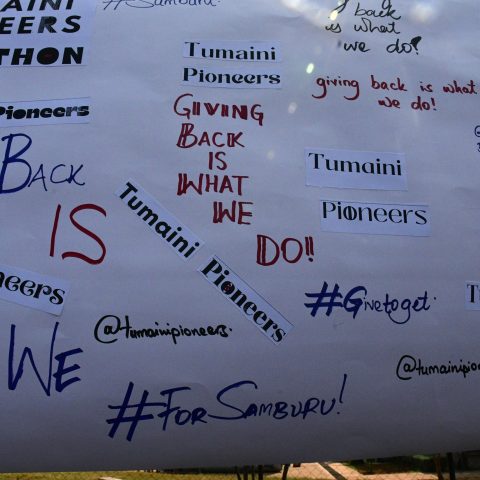 #Samburu.
back
is what
we do!
EERS
THON
Tumaini
Pioneers
giving back is what
we do!
Pioneers
GIVING
BACK
IS
WHAT
WE
DO!!
BACK
IS
Tumaini
Pioneers
Tumaini
Pioneers
neers
#Givetoget.
@tumainipioneers.
WE
@tumainipio
#FORSAMBURU!